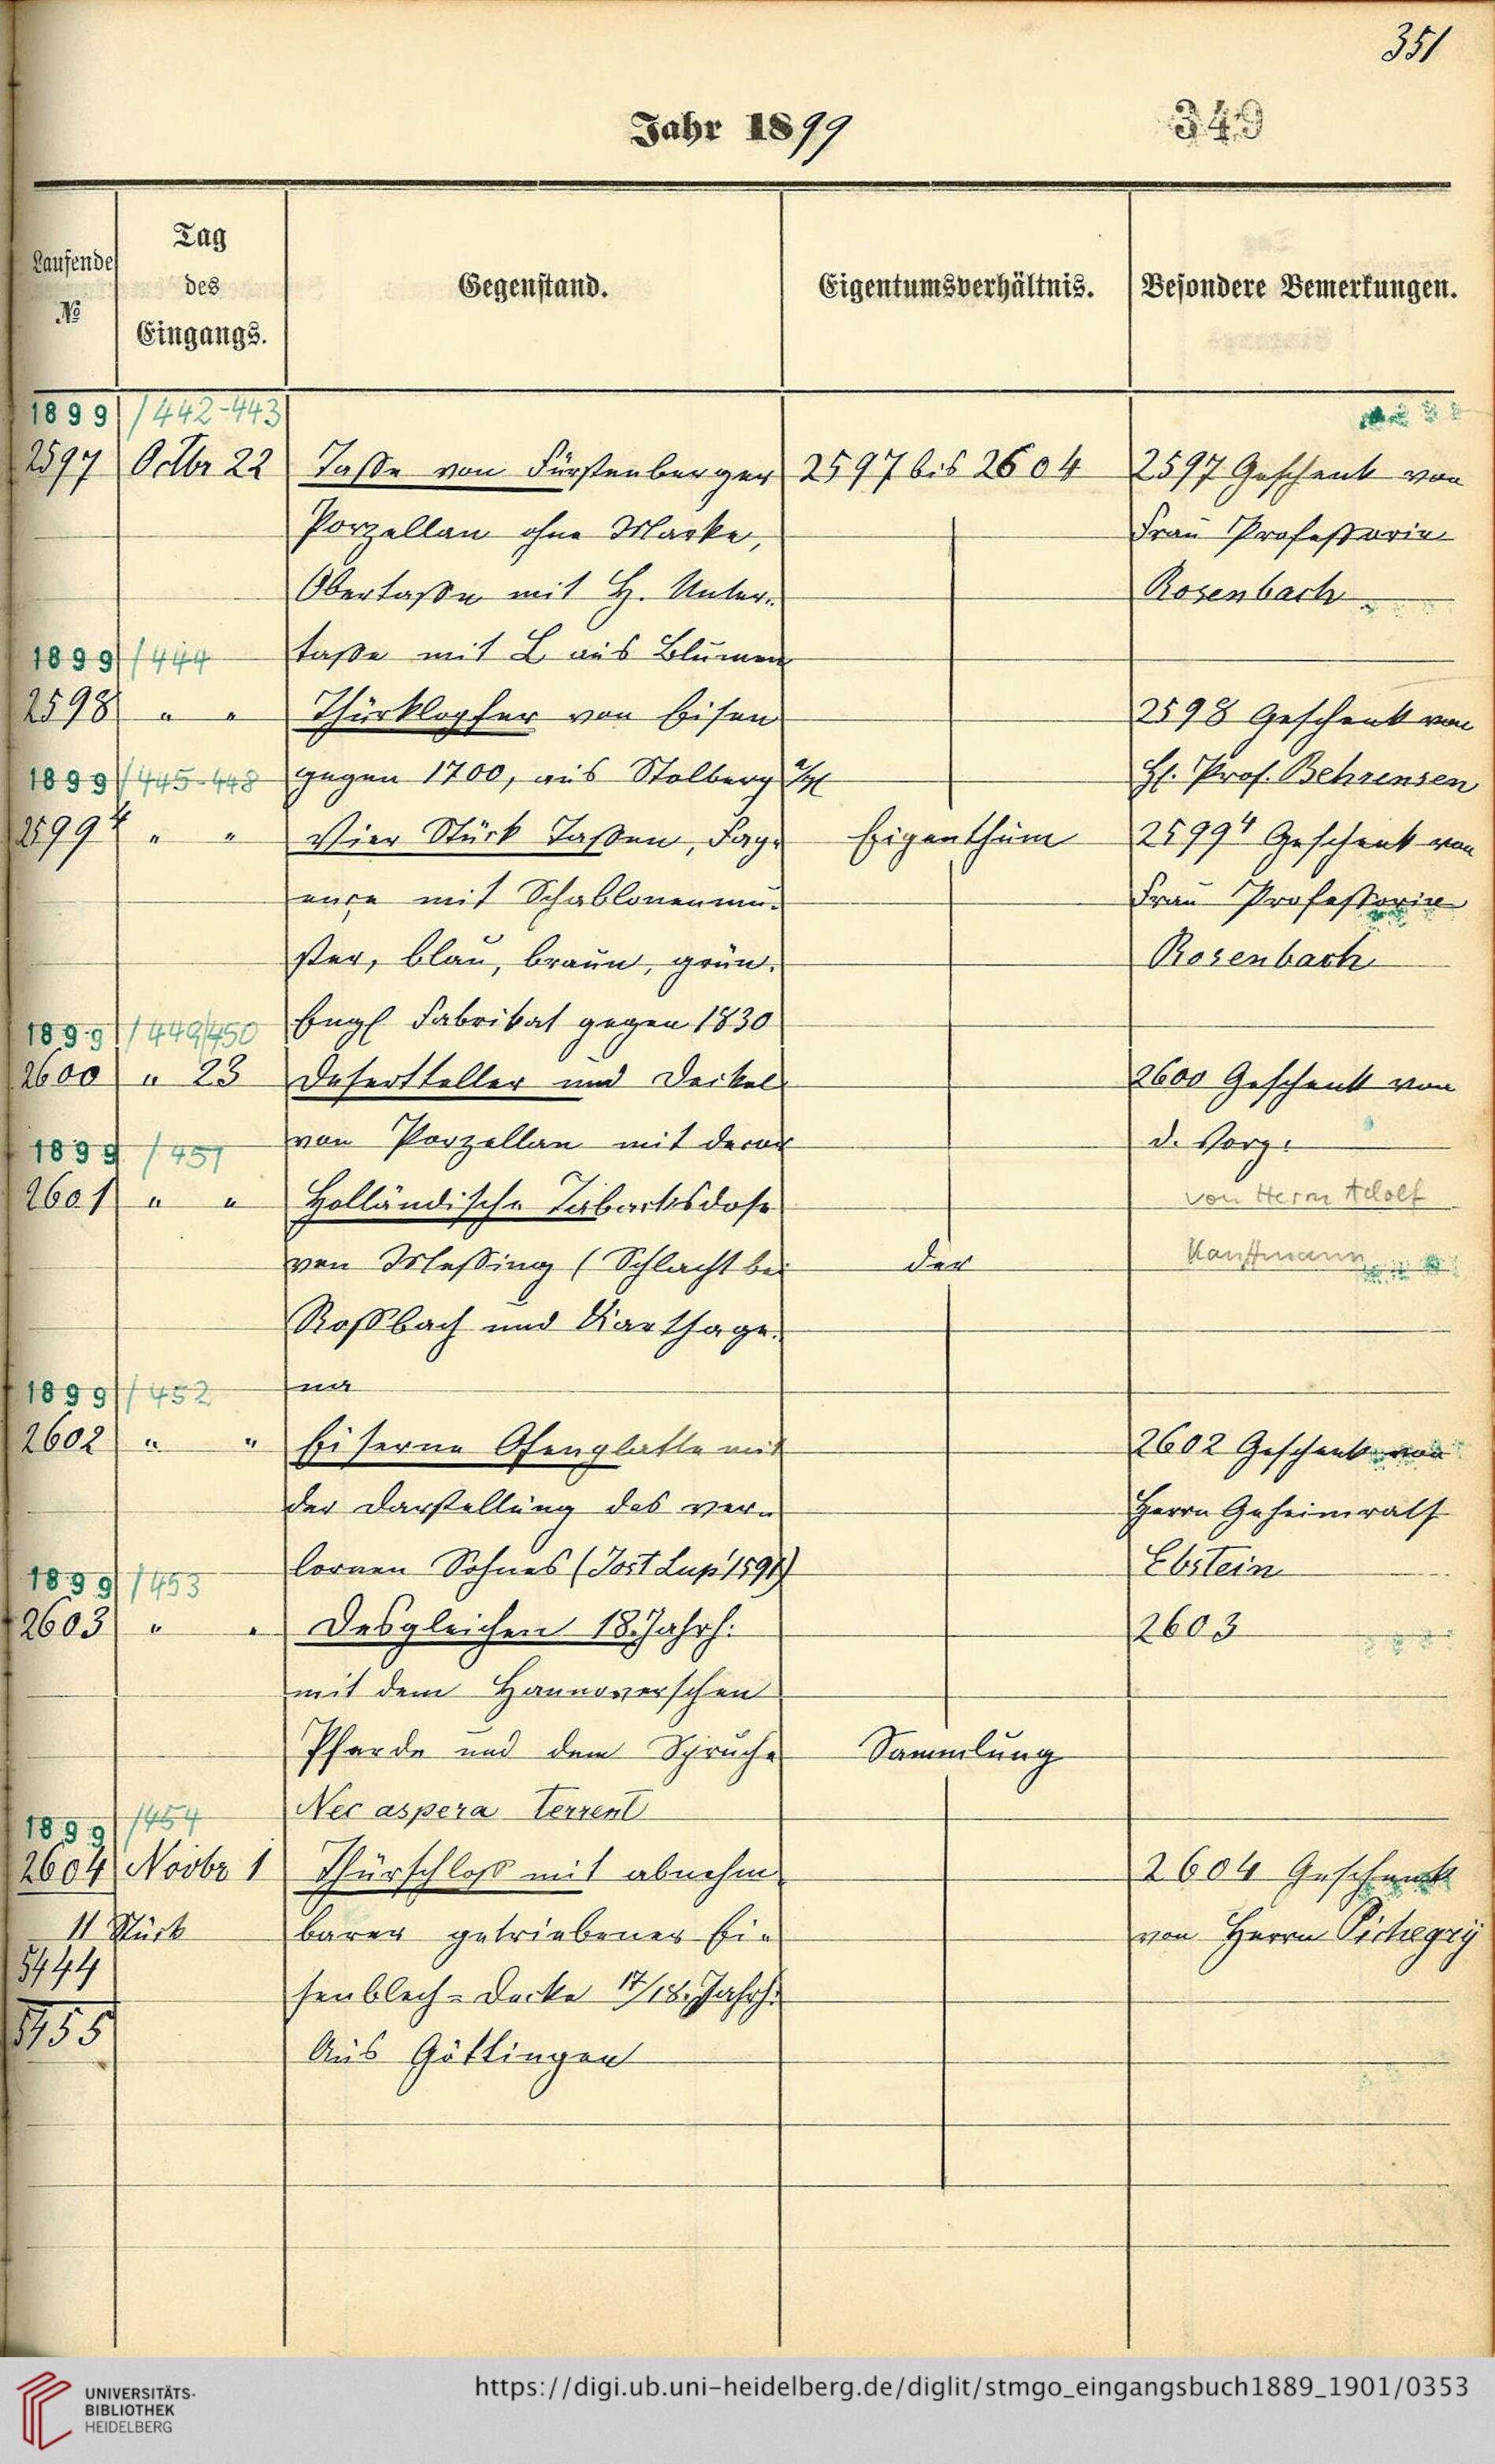 351
Jahr 1899
349
Laufende № | Tag des Eingangs. | Gegenstand. | Eigentumsverhältnis. | Besondere Bemerkungen.
1899 /442-443
2597 Octbr 22 Taße von Fürstenberger 2597 bis 2604 2597 Geschenk von
Porzellan ohne Marke, Frau Profeßorin
Obertaße mit H. Unter- Rosenbach
1899 /444 taße mit L aus Blumen
2598 " " Thürklopfer von Eisen 2598 Geschenk von
1899 /445-448 gegen 1700, aus Stolberg a/H H. Prof. Behrensen
2599⁴ " " Vier Stück Taßen, Fay- Eigenthum 2599⁴ Geschenk von
ençe mit Schablonenmu- Frau Profeßorin
ster, blau, braun, grün. Rosenbach
1899 /449/450 Engl Fabrikat gegen 1830
2600 " 23 Desertteller und Deckel 2600 Geschenk von
1899 /451 von Porzellan mit Decor d. Vorg.
2601 " " Holländische Tabacksdose von Herrn Adolf
von Meßing (Schlacht bei der Kauffmann
Roßbach und Karthage-
1899 /452 na
2602 " " Eiserne Ofenplatte mit 2602 Geschenk von
der Darstellung des ver- Herrn Geheimrath
1899 /453 lornen Sohnes (Jost Lup' 1591) Ebstein
2603 " " Desgleichen 18. Jahrh: 2603
mit dem Hannoverschen
Pferde und dem Spruche Sammlung
1899 /454 Nec aspera terrent
2604 Novbr 1 Thürschloß mit abnehm- 2604 Geschenk
11 Stück barer getriebener Ei- von Herrn Pichegrÿ
5444 senblech-Decke 17/18. Jahrh:
5455 Aus Göttingen
UNIVERSITÄTS-
BIBLIOTHEK
HEIDELBERG
https://digi.ub.uni-heidelberg.de/diglit/stmgo_eingangsbuch1889_1901/0353